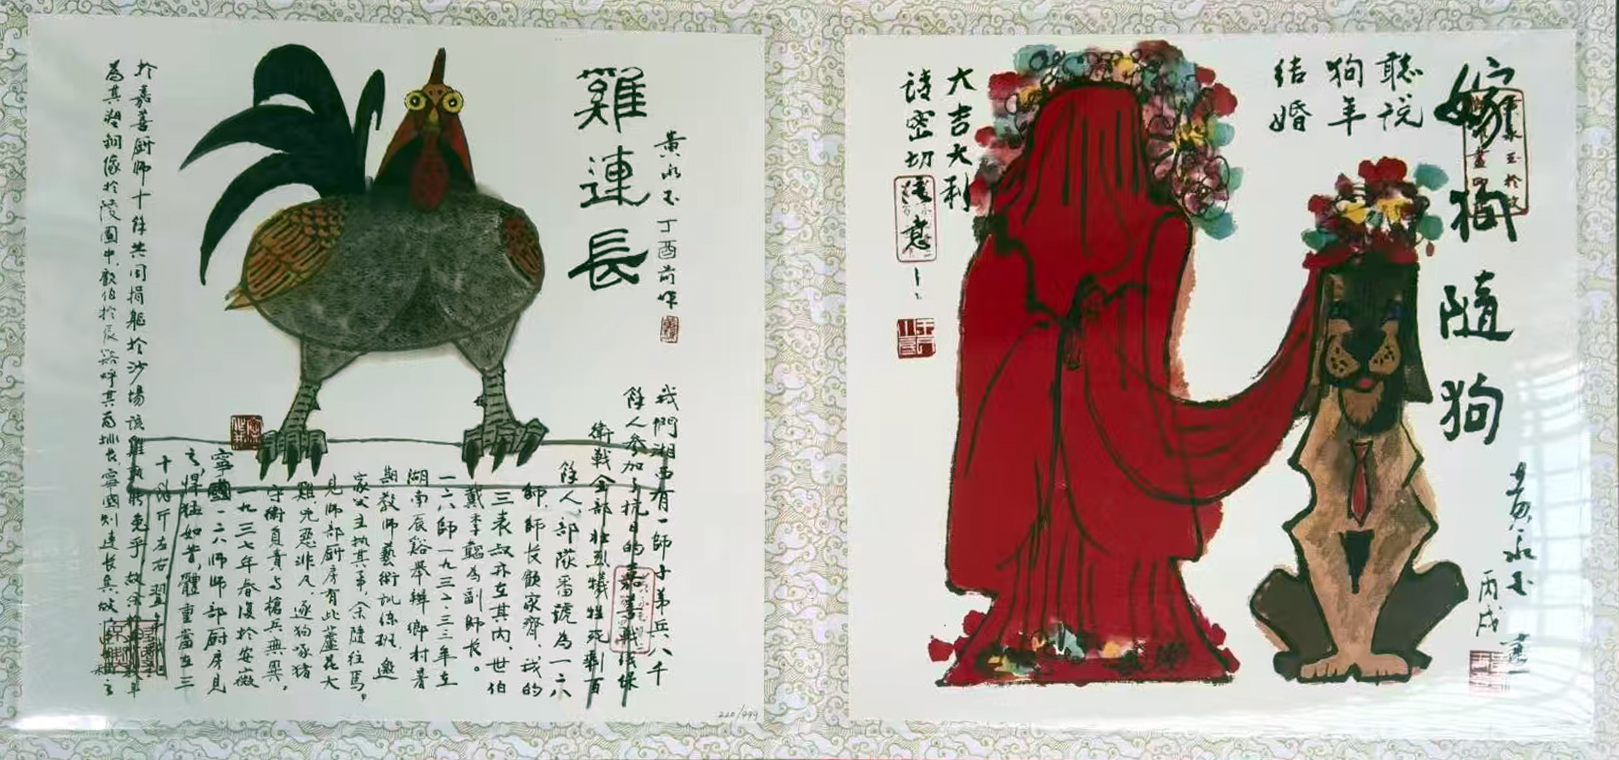 雞連長
黃永玉丁酉前作
我們湘西有一師子弟兵八千
餘人參加了抗日的嘉善戰役保
衛戰全部壯烈犧牲死剩百
餘人、部隊番號為一二八
師、師長顧家齊、我的
三表叔亦在其內、世伯
戴季韜為副師長。
一二八師一九三二三三年在
湖南辰谿舉辦鄉村師
期教師藝術訓練班、邀
家父主持其事、余隨往焉、
見師部厨房有此蘆花大
雞兇惡非凡、逐狗啄豬
守衛負責与槍兵無異、
一九三七年春復於安徽
寧國一二八師師部厨房見
之、悍猛如昔、體重當在三
十
斤左右、翌年
於嘉善厨師十餘共同捐軀於沙場該雞
為其塑銅像於陵園中、
於辰谿呼其為
長寧國則連長矣
220/999
嫁狗隨狗
聽说
狗年
结婚
大吉大利
诗密切注意
黃永玉
丙戌
畫